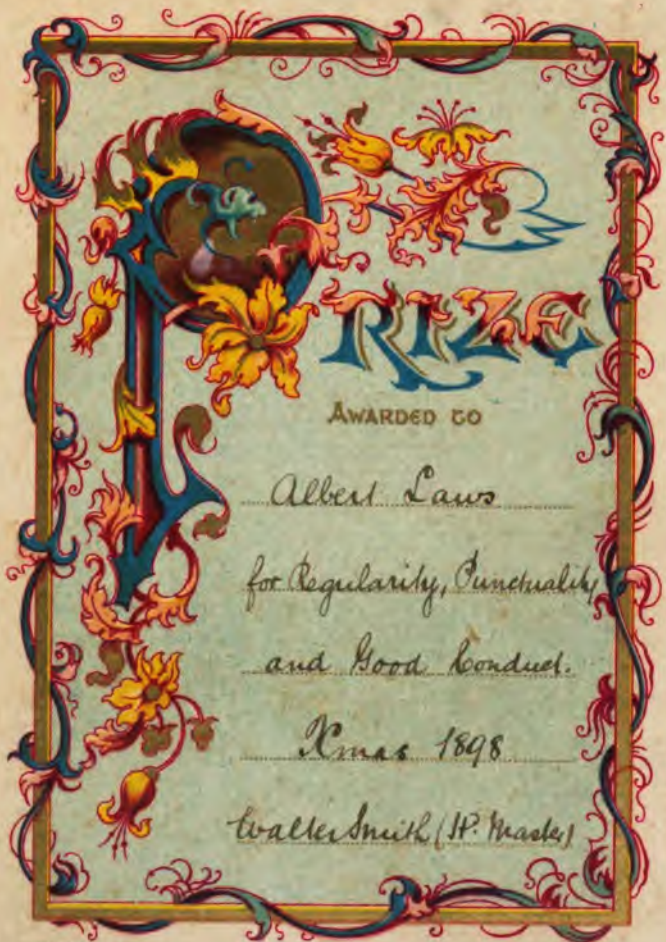 PRIZE
AWARDED TO
Albert Laws
for Regularity, Punctuality
and Good Conduct.
Xmas 1898
Walter Smith (Hd. Master)